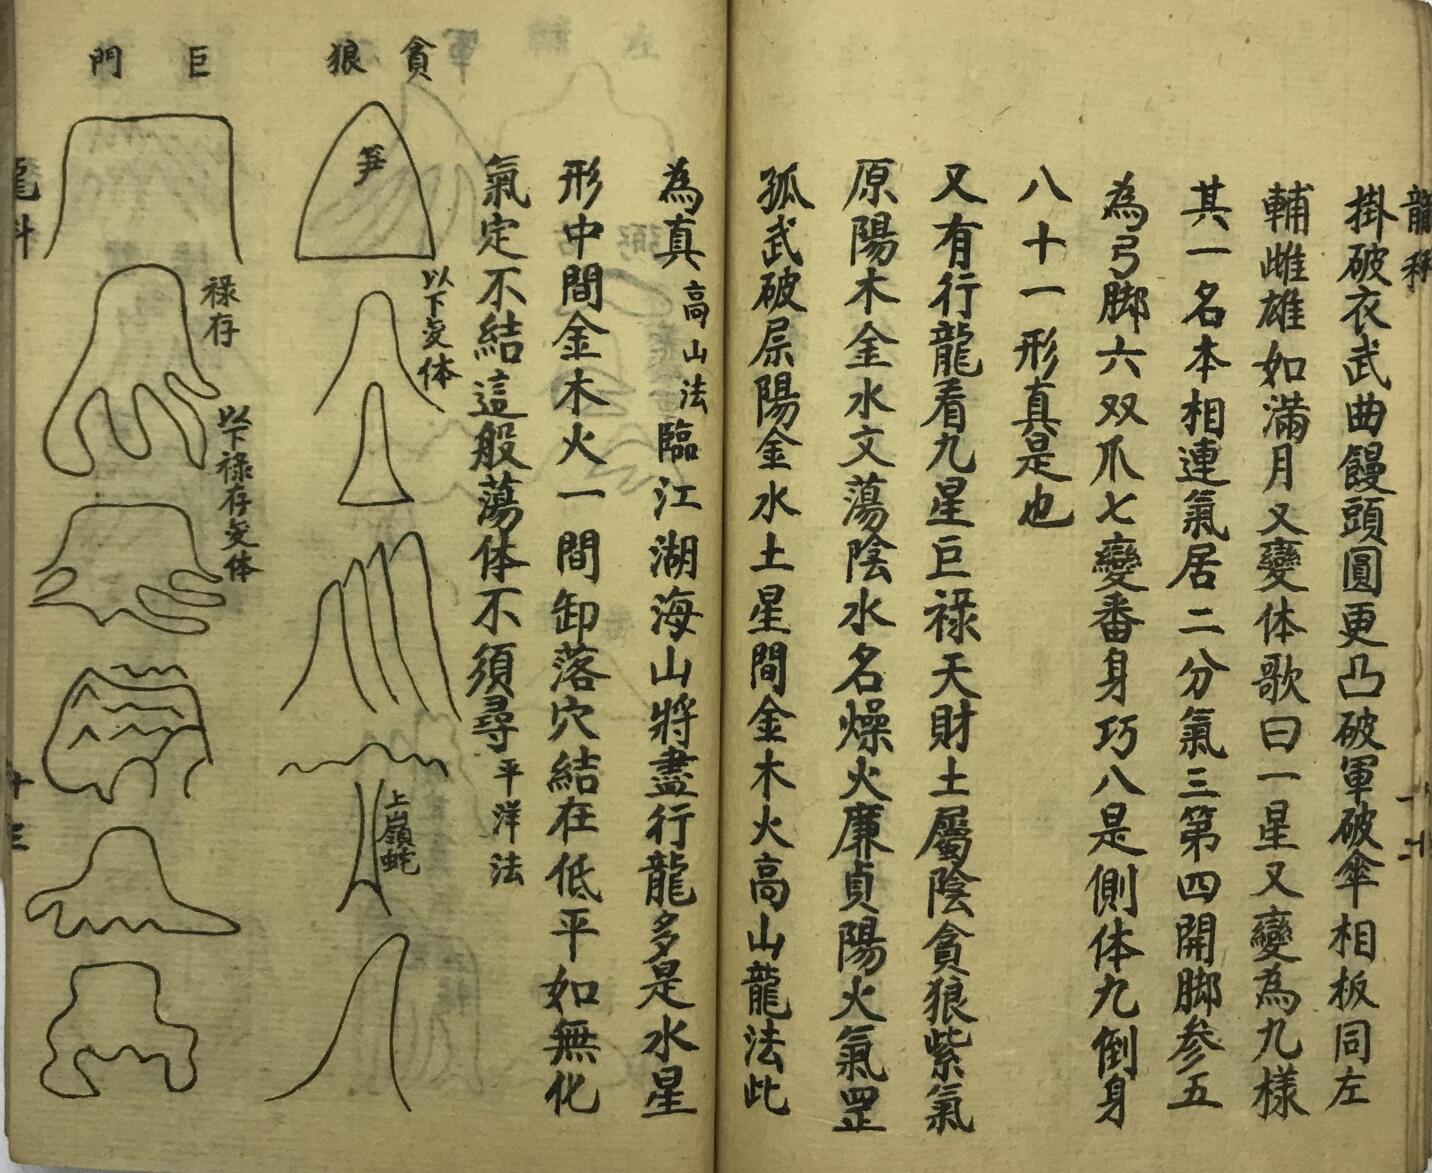 掛破衣武曲饅頭圓更凸破軍破傘相板同左
輔雌雄如滿月又變体歌曰一星又變為九樣
其一名本相連氣居二分氣三第四開脚参五
為弓脚六双爪七變番身巧八是側体九倒身
八十一形真是也
又有行龍看九星巨祿天財土屬陰貪狼紫氣
原陽木金水文蕩陰水名燥火廉貞陽火氣罡
孤武破屎陽金水土星間金木火高山龍法此
為真高山法臨江湖海山將盡行龍多是水星
形中間金木火一間卸落穴結在低平如無化
氣定不結這般蕩体不須尋平洋法
貪狼
笋
以下変体
上嶺蛇
巨門
祿存
以下祿存変体